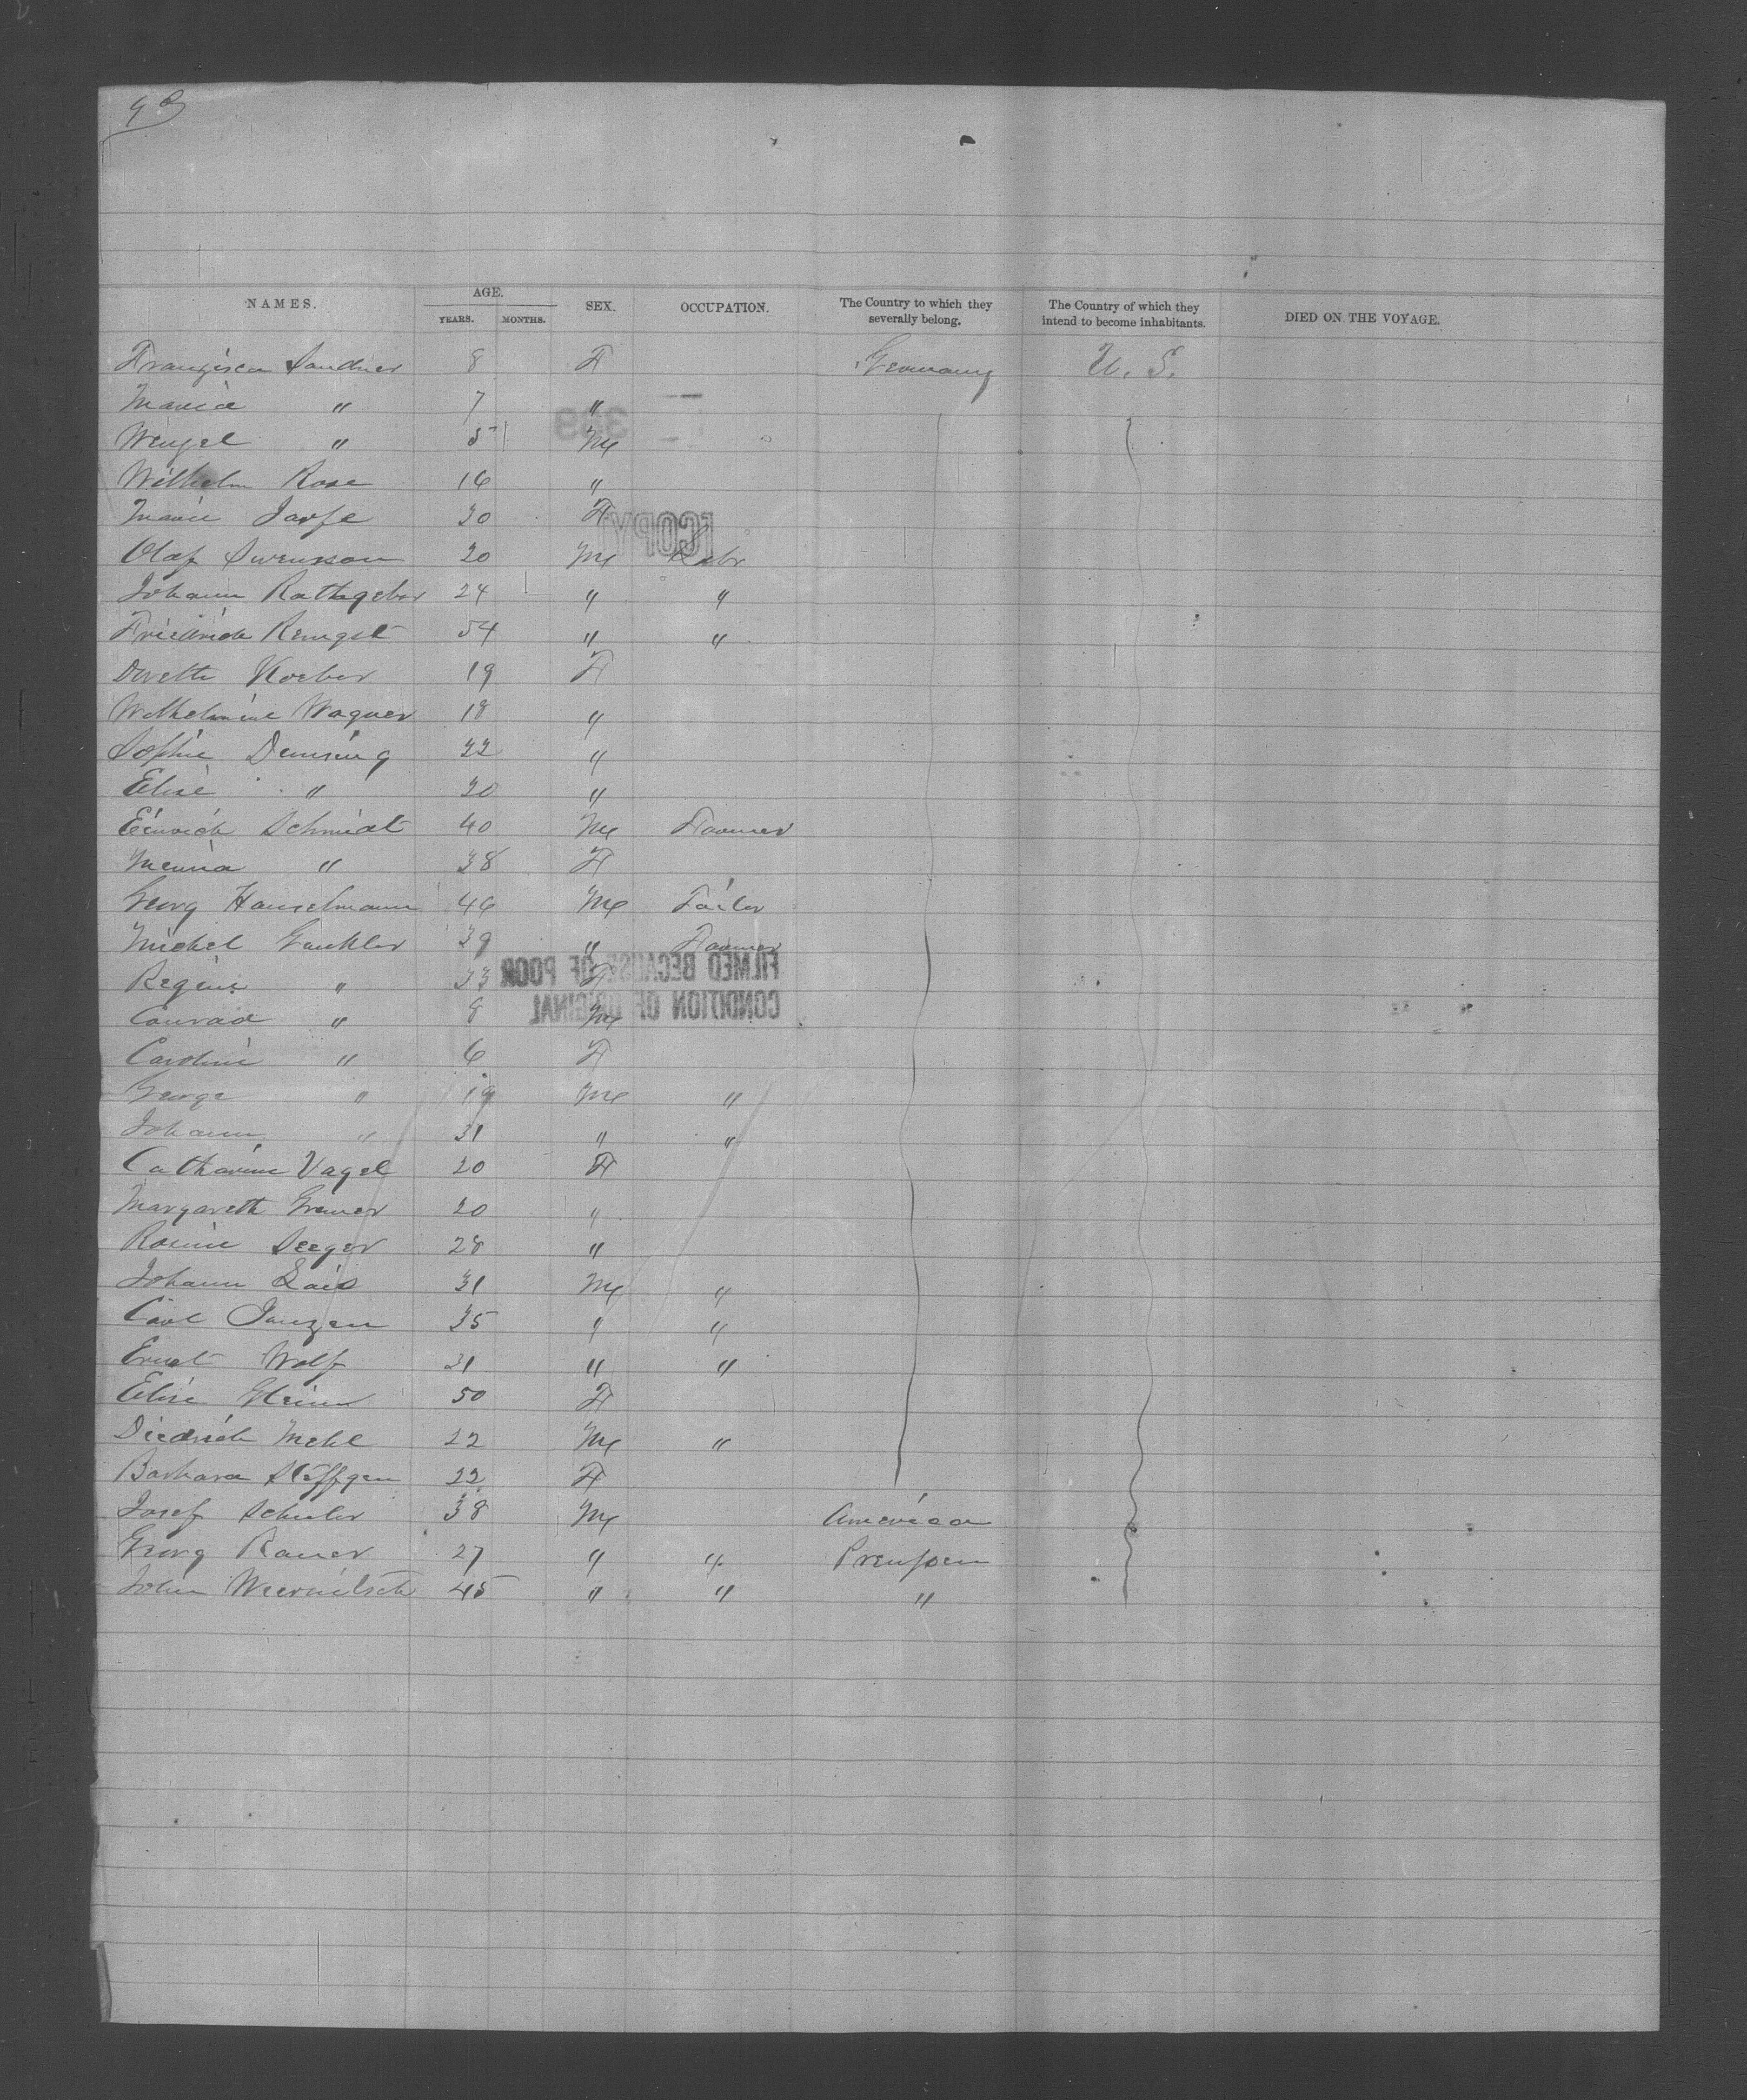 NAMES. AGE. YEARS. MONTHS. SEX. OCCUPATION. The Country to which they severally belong. The Country of which they intend to become inhabitants. DIED ON THE VOYAGE.
Franzisca Sandner 8 F Germany U. S.
Maria " 7 "
Wenzel " 5 M
Wilhelm Rose 16 "
Marie 30 F
COPY
Olaf Swensson 20 M Labr
Johann Rathgeber 24 " "
Friedrich 54 " "
Dorette Koeber 19 F
Wilhelmine Wagner 18 "
Sophie Densing 22 "
Elise " 20 "
Heinrich Schmidt 40 M Farmer
" 38 F
Georg Hanselmann 46 M Tailor
Michel Gaukler 39 " Farmer
FILMED BECAUSE OF POOR
Regine " 33 F
CONDITION OF ORIGINAL
Conrad " 8 M
Caroline " 6 F
George " 19 M "
Johann " 31 " "
Catharine Vagel 20 F
Margareth Greiner 20 "
Rosine Seeger 28 "
Johann 31 M "
Carl Janzen 35 " "
Ernst Wolf 31 " "
Elise 50 F
Diedrich Mehl 22 M "
Barbara Steffgen 22 F
Josef Schuler 38 M America
Georg Rauer 27 " " Preussen
John 45 " " "